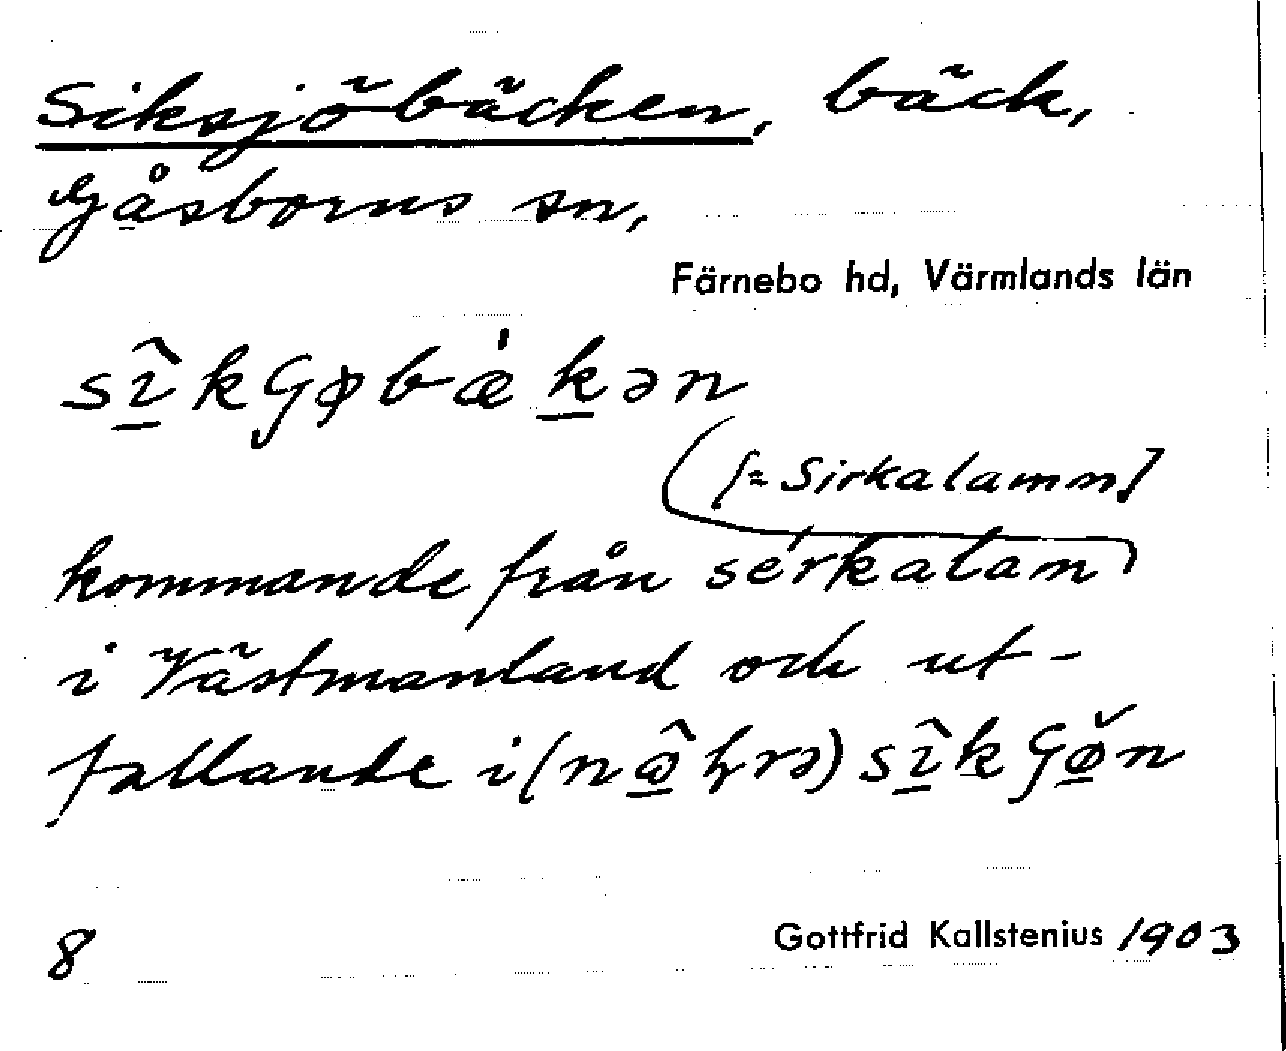 Siksjöbäcken, bäck,
Gåsborns sn,
Färnebo hd, Värmlands län
[= Sirkalamm]
kommande från sérkalam
i Västmanland och ut-
fallande i
8
Gottfrid Kallstenius 1903